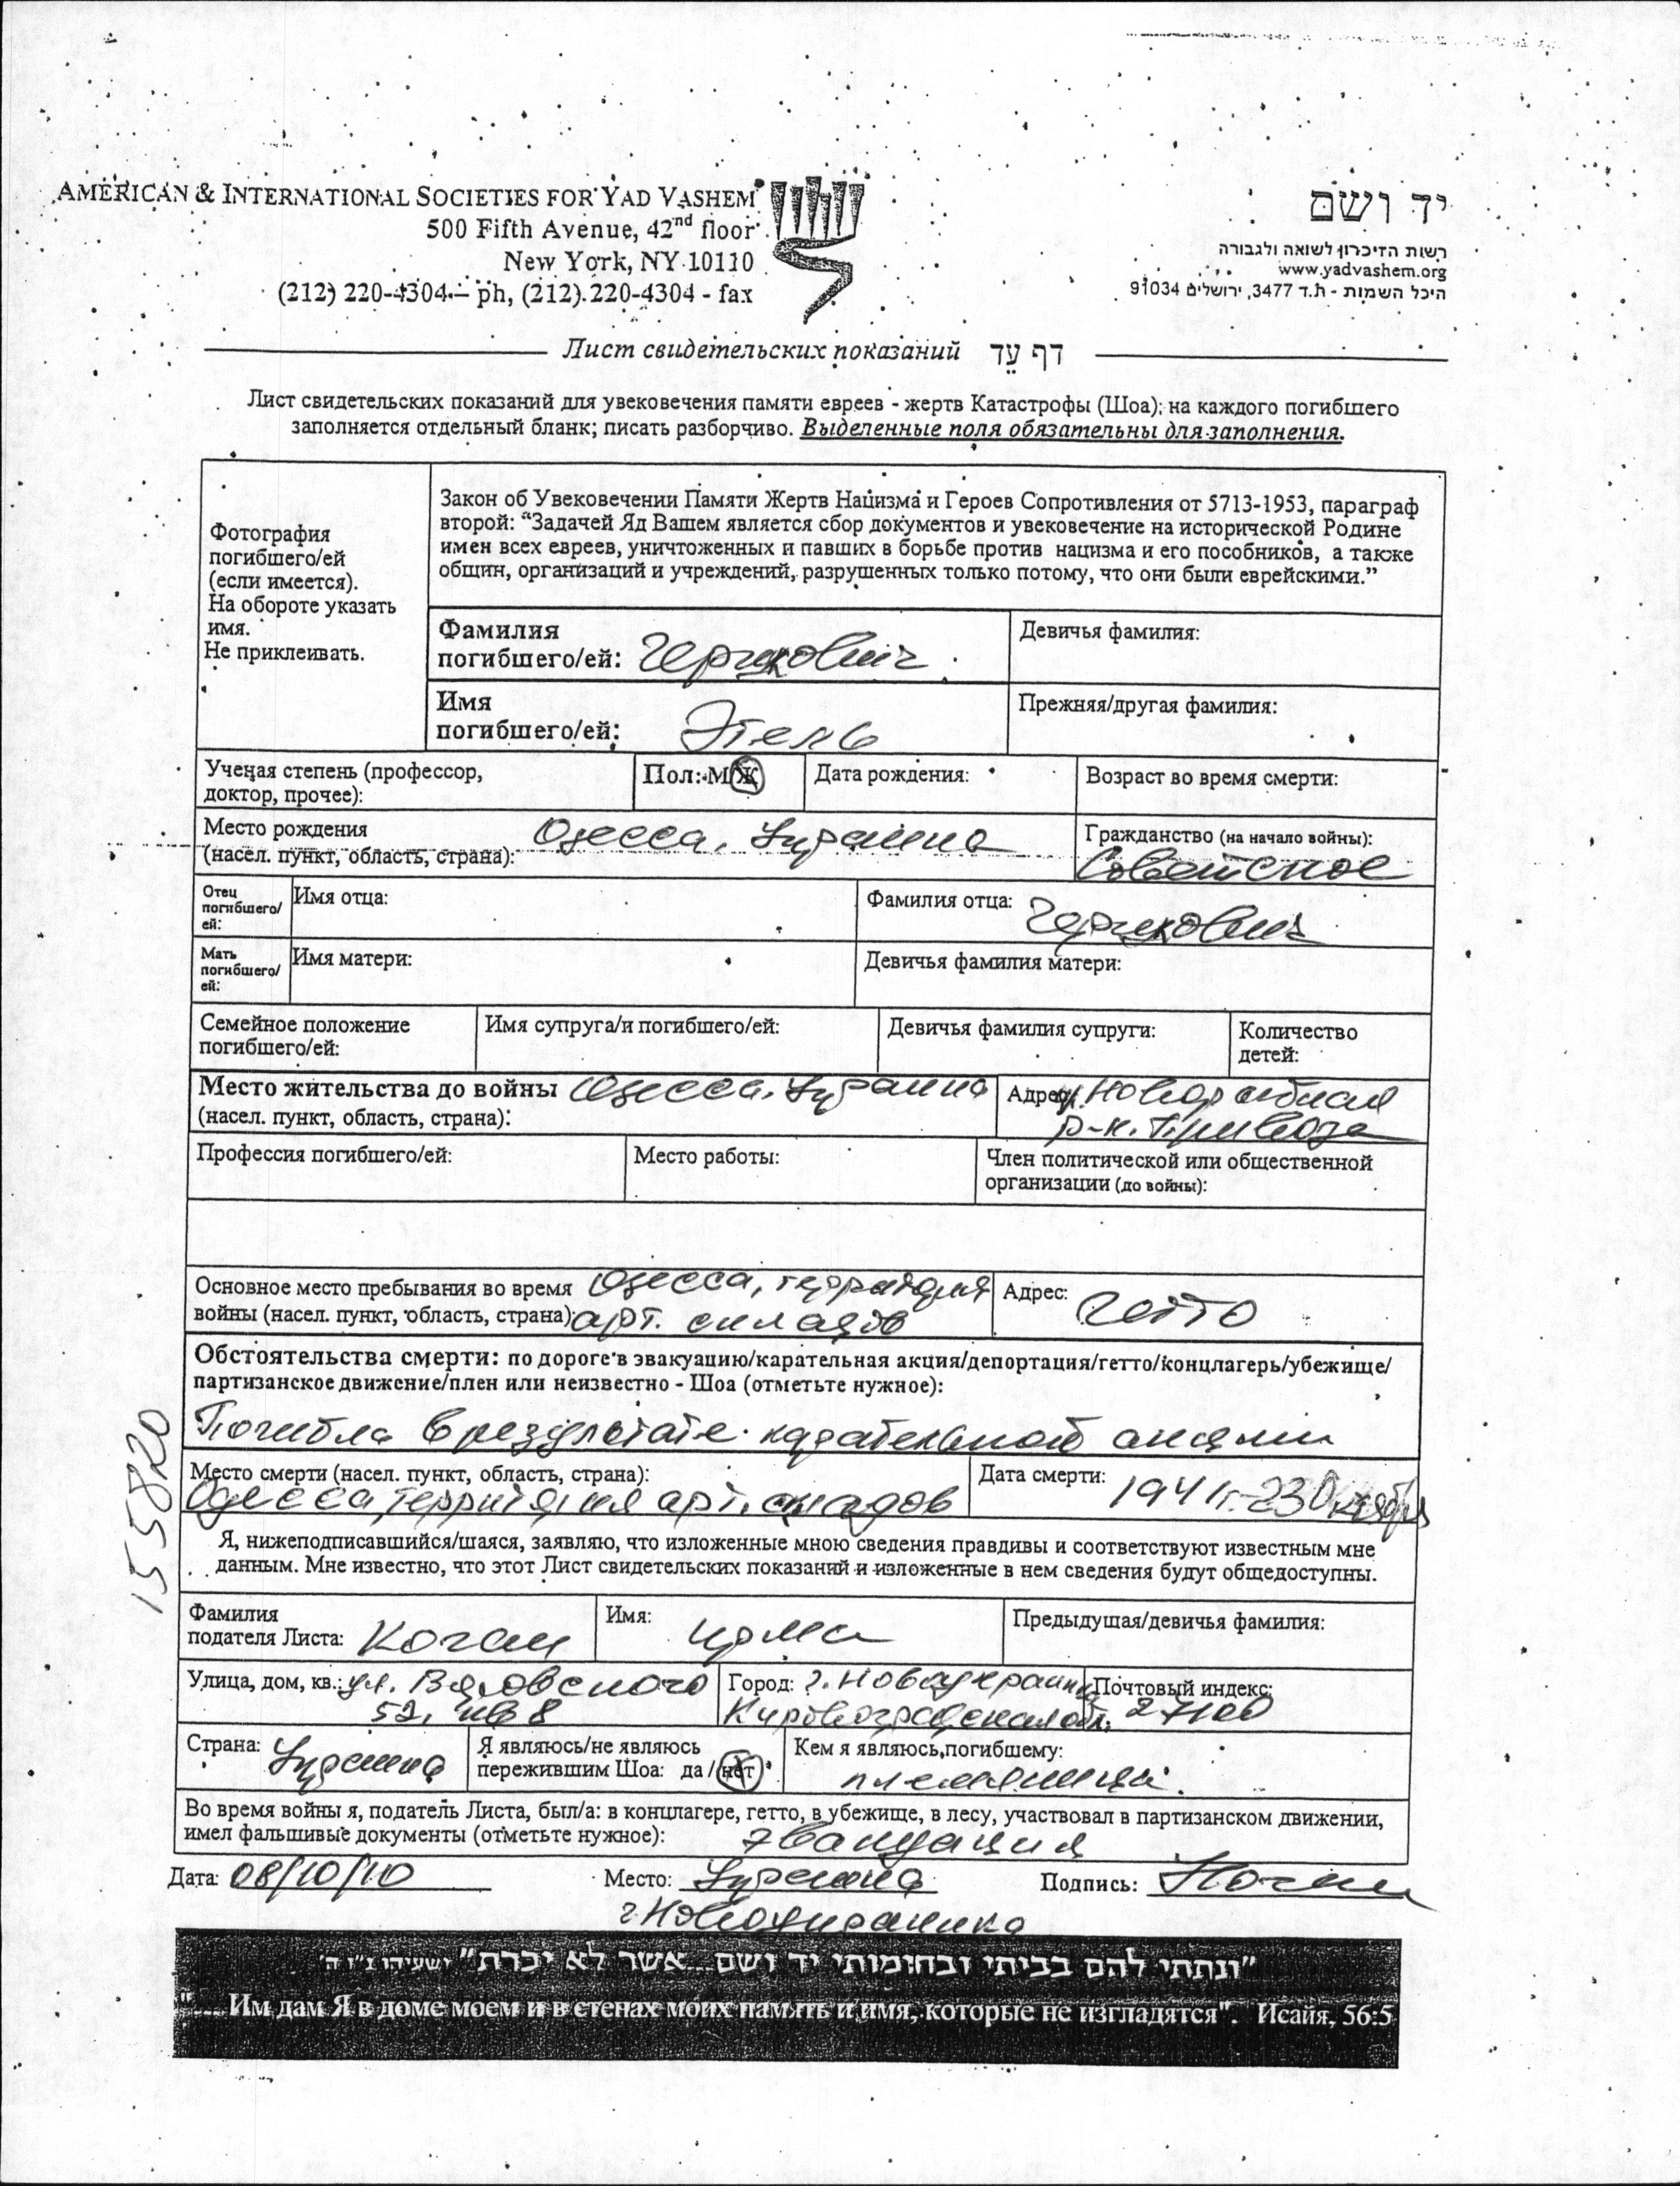 AMERICAN & INTERNATIONAL SOCIETIES FOR YAD VASHEM
500 Fifth Avenue, 42nd floor
New York, NY 10110
(212) 220-4304 – ph, (212) 220-4304 - fax
יד ושם
רשות הזיכרון לשואה ולגבורה
www.yadvashem.org
היכל השמות - ת.ד 3477, ירושלים 91034
Лист свидетельских показаний דף עד
Лист свидетельских показаний для увековечения памяти евреев - жертв Катастрофы (Шоа); на каждого погибшего
заполняется отдельный бланк; писать разборчиво. Выделенные поля обязательны для заполнения.
Фотография
погибшего/ей
(если имеется).
На обороте указать
имя.
Не приклеивать.
Закон об Увековечении Памяти Жертв Нацизма и Героев Сопротивления от 5713-1953, параграф
второй: “Задачей Яд Вашем является сбор документов и увековечение на исторической Родине
имен всех евреев, уничтоженных и павших в борьбе против нацизма и его пособников, а также
общин, организаций и учреждений, разрушенных только потому, что они были еврейскими.”
Фамилия
погибшего/ей:
Девичья фамилия:
Имя
погибшего/ей: Этель
Прежняя/другая фамилия:
Ученая степень (профессор,
доктор, прочее):
Пол: М Ж
Дата рождения:
Возраст во время смерти:
Место рождения
(насел. пункт, область, страна): Одесса, Украина
Гражданство (на начало войны):
Советское
Отец
погибшего/
ей:
Имя отца:
Фамилия отца:
Мать
погибшего/
ей:
Имя матери:
Девичья фамилия матери:
Семейное положение
погибшего/ей:
Имя супруга/и погибшего/ей:
Девичья фамилия супруги:
Количество
детей:
Место жительства до войны Одесса, Украина
(насел. пункт, область, страна):
Адрес:
р-н. Привоза
Профессия погибшего/ей:
Место работы:
Член политической или общественной
организации (до войны):
Основное место пребывания во время Одесса, территория
войны (насел. пункт, область, страна): арт. складов
Адрес: Гетто
Обстоятельства смерти: по дороге в эвакуацию/карательная акция/депортация/гетто/концлагерь/убежище/
партизанское движение/плен или неизвестно - Шоа (отметьте нужное):
Погибла в результате карательной акции
Место смерти (насел. пункт, область, страна):
Одесса, территория арт. складов
Дата смерти: 1941г. 23 Октября
155820
Я, нижеподписавшийся/шаяся, заявляю, что изложенные мною сведения правдивы и соответствуют известным мне
данным. Мне известно, что этот Лист свидетельских показаний и изложенные в нем сведения будут общедоступны.
Фамилия
подателя Листа: Коган
Имя: Ирма
Предыдущая/девичья фамилия:
Улица, дом, кв.: ул.
52, кв 8
Город: г. Новоукраинка
Кировоградская обл.
Почтовый индекс:
27100
Страна: Украина
Я являюсь/не являюсь
пережившим Шоа: да / нет
Кем я являюсь погибшему:
племянница
Во время войны я, податель Листа, был/а: в концлагере, гетто, в убежище, в лесу, участвовал в партизанском движении,
имел фальшивые документы (отметьте нужное): эвакуация
Дата: 08/10/10 Место: Украина Подпись: Коган
г. Новоукраинка
"ונתתי להם בביתי ובחומותי יד ושם...אשר לא יכרת" ישעיהו נ"ו ה'
"... Им дам Я в доме моем и в стенах моих память и имя, которые не изгладятся". Исайя, 56:5